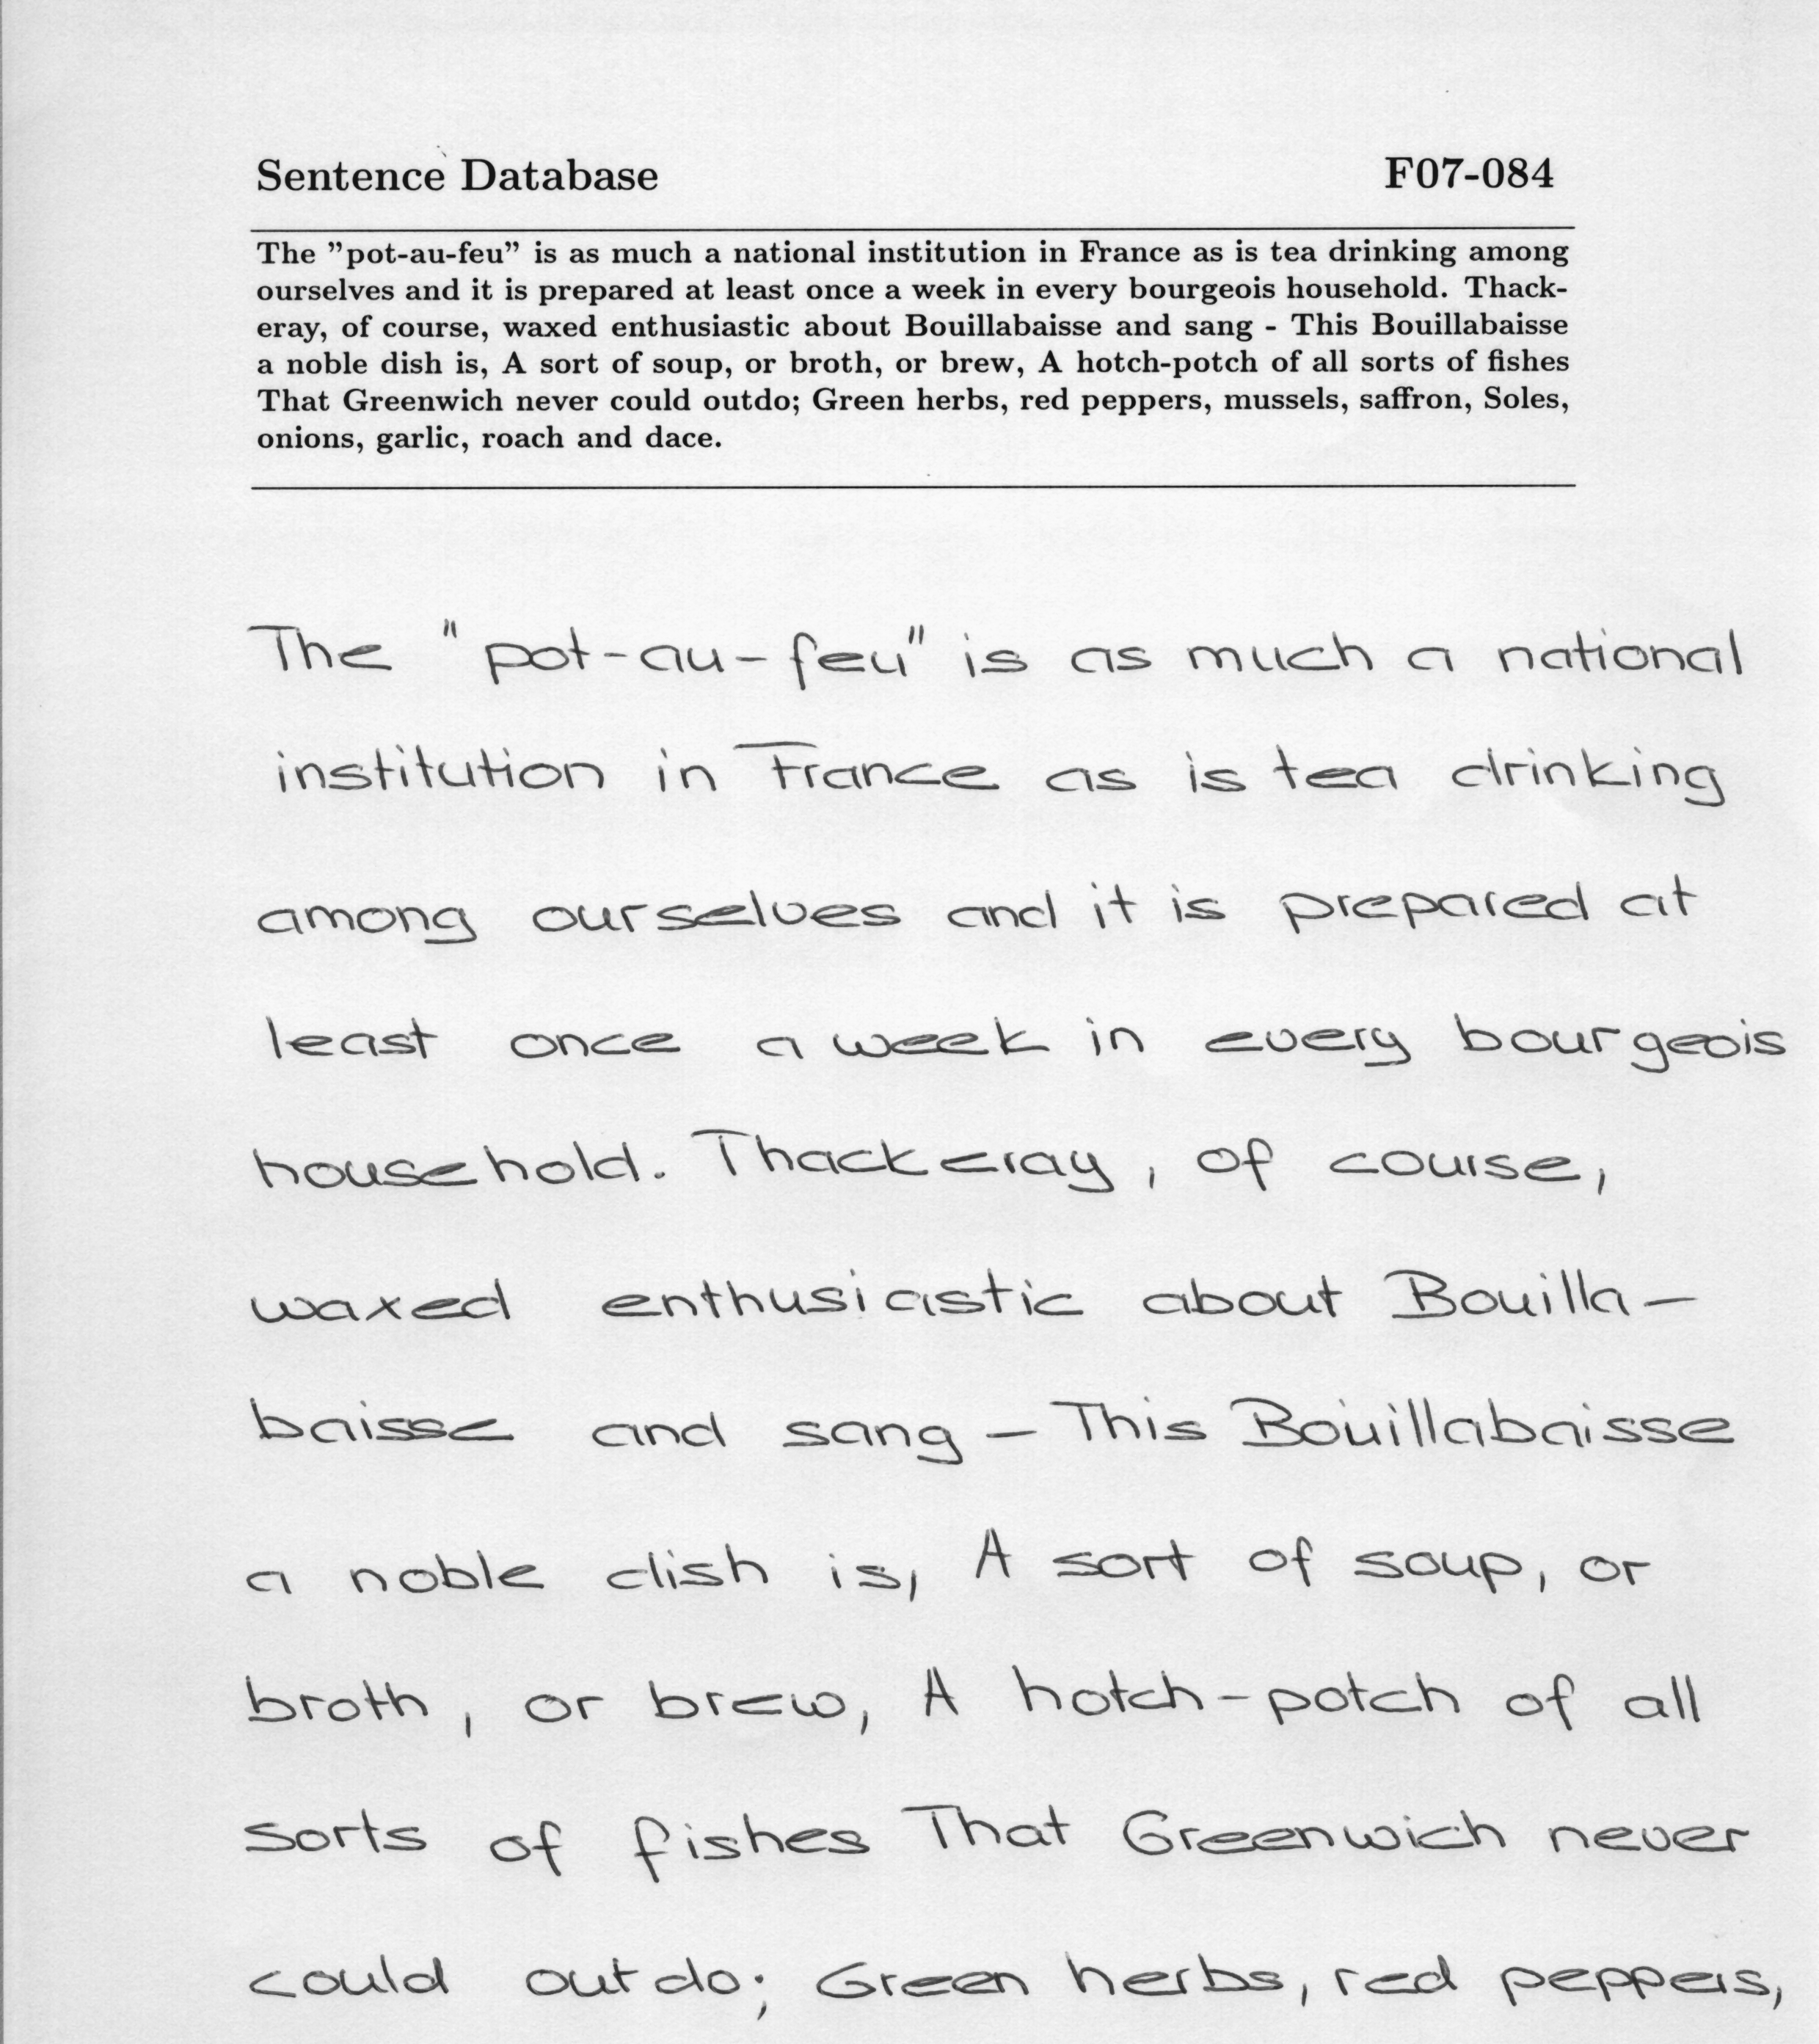 Sentence Database F07-084
The ”pot-au-feu” is as much a national institution in France as is tea drinking among
ourselves and it is prepared at least once a week in every bourgeois household. Thack-
eray, of course, waxed enthusiastic about Bouillabaisse and sang - This Bouillabaisse
a noble dish is, A sort of soup, or broth, or brew, A hotch-potch of all sorts of fishes
That Greenwich never could outdo; Green herbs, red peppers, mussels, saffron, Soles,
onions, garlic, roach and dace.
The "pot-au-feu" is as much a national
institution in France as is tea drinking
among ourselves and it is prepared at
least once a week in every bourgeois
household. Thackeray, of course,
waxed enthusiastic about Bouilla-
baisse and sang - This Bouillabaisse
a noble dish is, A sort of soup, or
broth, or brew, A hotch-potch of all
sorts of fishes That Greenwich never
could outdo; Green herbs, red peppers,